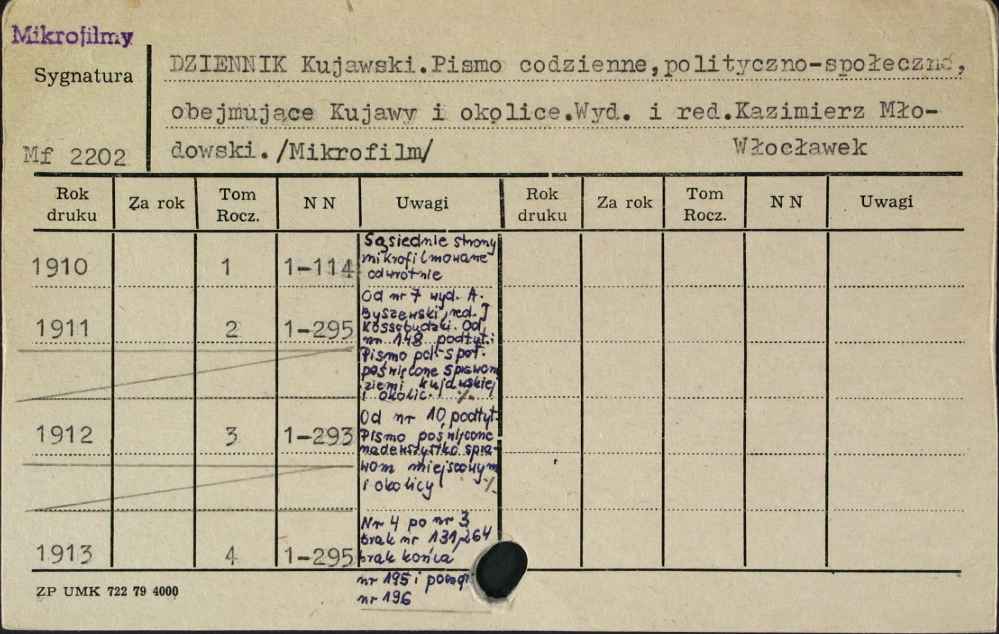 Mikrofilmy
Sygnatura
DZIENNIK Kujawski.Pismo codzienne,polityczno-społeczne,
obejmujące Kujawy i okolice.Wyd. i red.Kazimierz Mło-
Mf 2202
dowski./Mikrofilm/ Włocławek
Rok druku Za rok Tom Rocz. N N Uwagi Rok druku Za rok Tom Rocz. N N Uwagi
1910 1 1-114
Sąsiednie strony
mikrofilmowane
odwrotnie
1911 2 1-295
Od nr 7 wyd. A.
Byszewski, red. J
Kossobudzki. Od
nr 148 podtyt.:
Pismo pol.-społ.
poświęcone sprawom
ziemi kujawskiej
i okolic. %
1912 3 1-293
Od nr 10 podtyt.
Pismo poświęcone
nadewszystko spra-
wom miejscowym
i okolicy %
1913 4 1-295
Nr 4 po nr 3
brak nr 131,264
brak końca
nr 195 i
nr 196
ZP UMK 722 79 4000